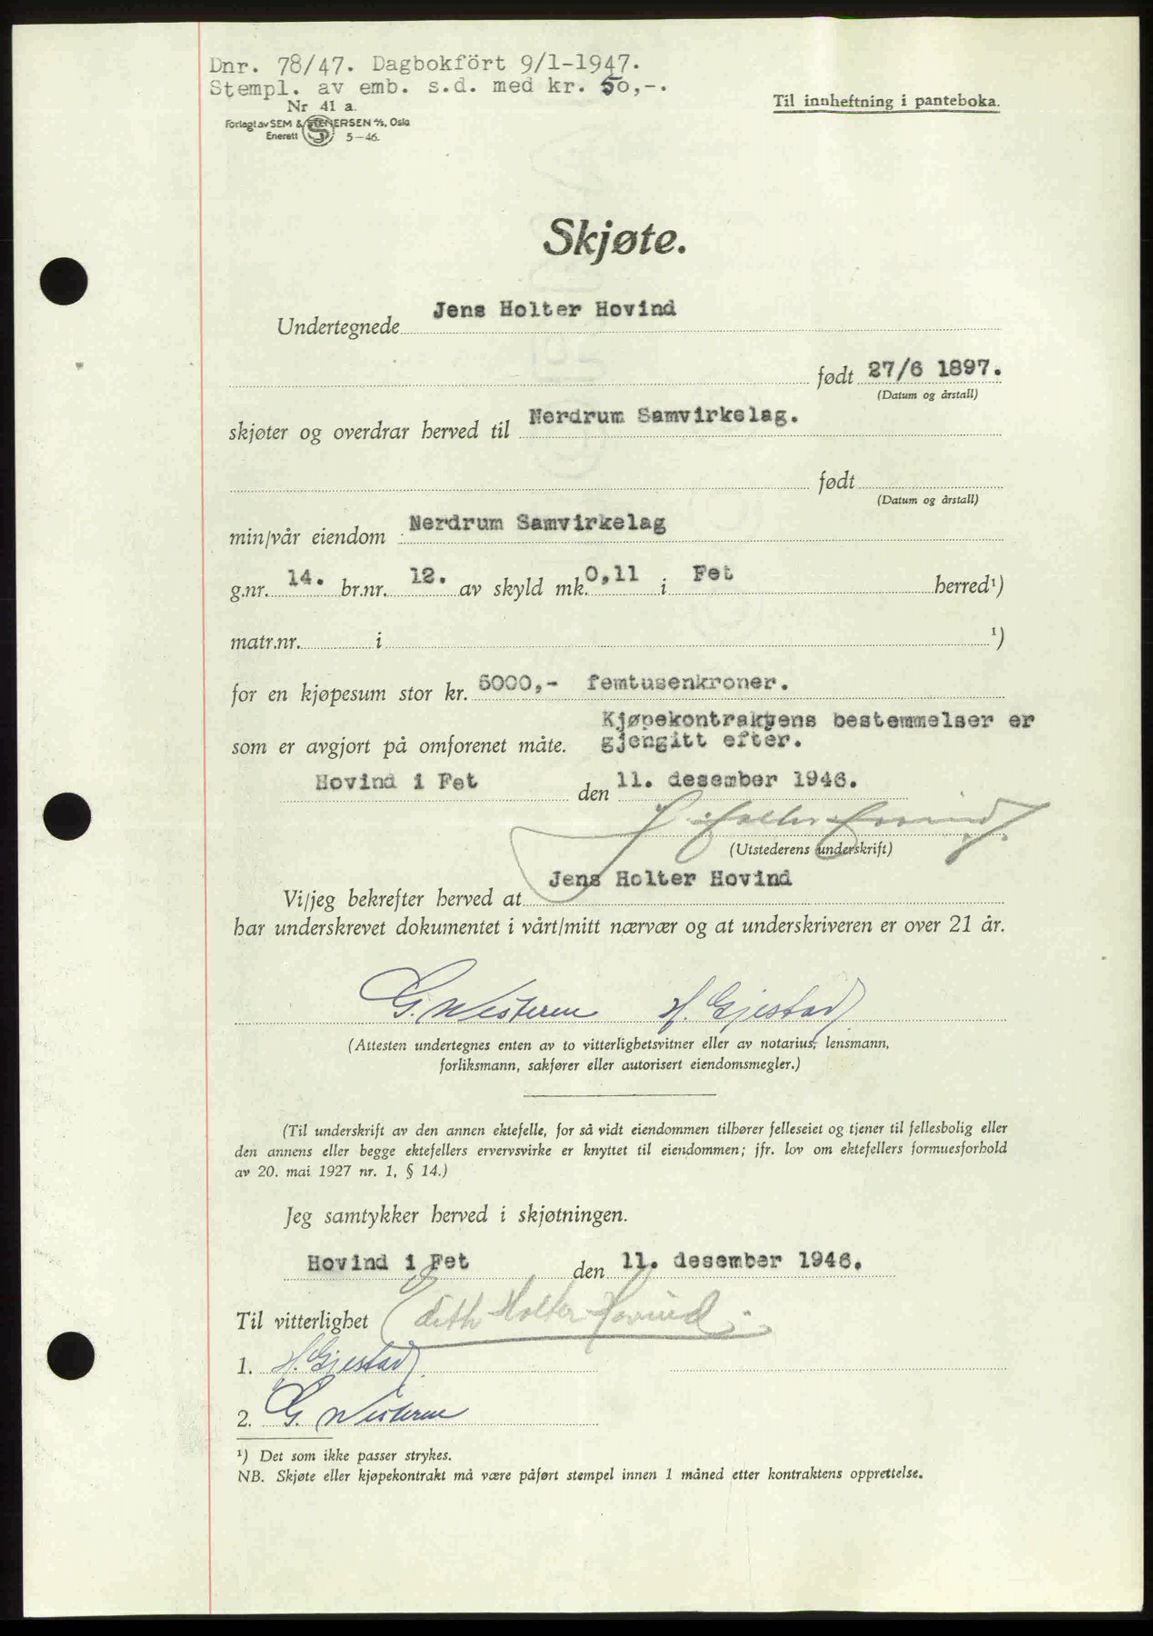 Dnr. 78/47. Dagbokført 9/1-1947.
Stempl. av emb. s.d. med kr. 50,-.
Nr 41 a.
Forlagt av SEM & STENERSEN A/S, Oslo
Enerett 5-46.
Til innheftning i panteboka.
Skjøte.
Undertegnede Jens Holter Hovind
født 27/6 1897.
(Datum og årstall)
skjøter og overdrar herved til Nerdrum Samvirkelag.
født
(Datum og årstall)
min/vår eiendom Nerdrum Samvirkelag
g.nr. 14. br.nr. 12. av skyld mk. 0,11 i Fet herred¹)
matr.nr. i ¹)
for en kjøpesum stor kr. 5000,- femtusenkroner.
Kjøpekontraktens bestemmelser er
som er avgjort på omforenet måte. gjengitt efter.
Hovind i Fet den 11. desember 1946.
J. Holter Hovind
(Utstederens underskrift)
Vi/jeg bekrefter herved at Jens Holter Hovind
har underskrevet dokumentet i vårt/mitt nærvær og at underskriveren er over 21 år.
G. Westeren H. Gjestad
(Attesten undertegnes enten av to vitterlighetsvitner eller av notarius, lensmann,
forliksmann, sakfører eller autorisert eiendomsmegler.)
(Til underskrift av den annen ektefelle, for så vidt eiendommen tilhører felleseiet og tjener til fellesbolig eller
den annens eller begge ektefellers ervervsvirke er knyttet til eiendommen; jfr. lov om ektefellers formuesforhold
av 20. mai 1927 nr. 1, § 14.)
Jeg samtykker herved i skjøtningen.
Hovind i Fet den 11. desember 1946.
Til vitterlighet Edith Holter Hovind
1. H. Gjestad
2. G. Westeren
¹) Det som ikke passer strykes.
NB. Skjøte eller kjøpekontrakt må være påført stempel innen 1 måned etter kontraktens opprettelse.